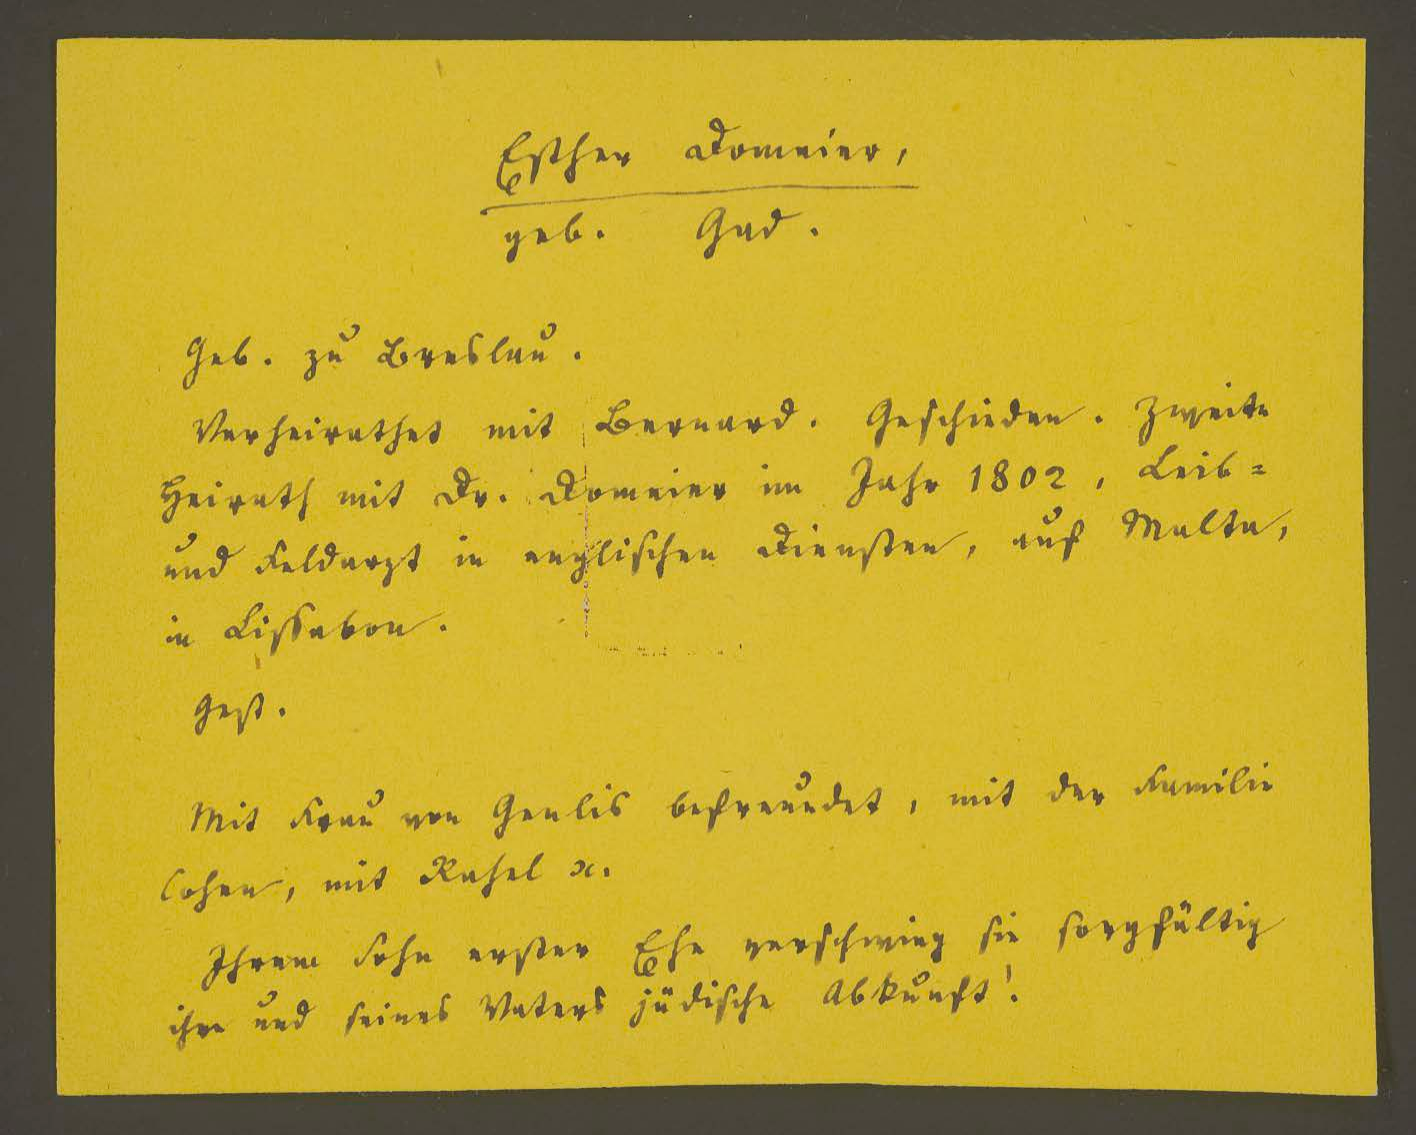 Esther Domeier,
geb. Gad.
Geb. zu Breslau.
Verheirathet mit Bernard. Geschieden. Zweite
Heirath mit Dr. Domeier im Jahr 1802, Leib=
und Feldarzt in englischen Diensten, auf Malta,
in Lissabon.
Gest.
Mit Frau von Genlis befreundet, mit der Familie
Cohen, mit Rahel ꝛc.
Ihrem Sohn erster Ehe verschwieg sie sorgfältig
ihre und seines Vaters jüdische Abkunft!